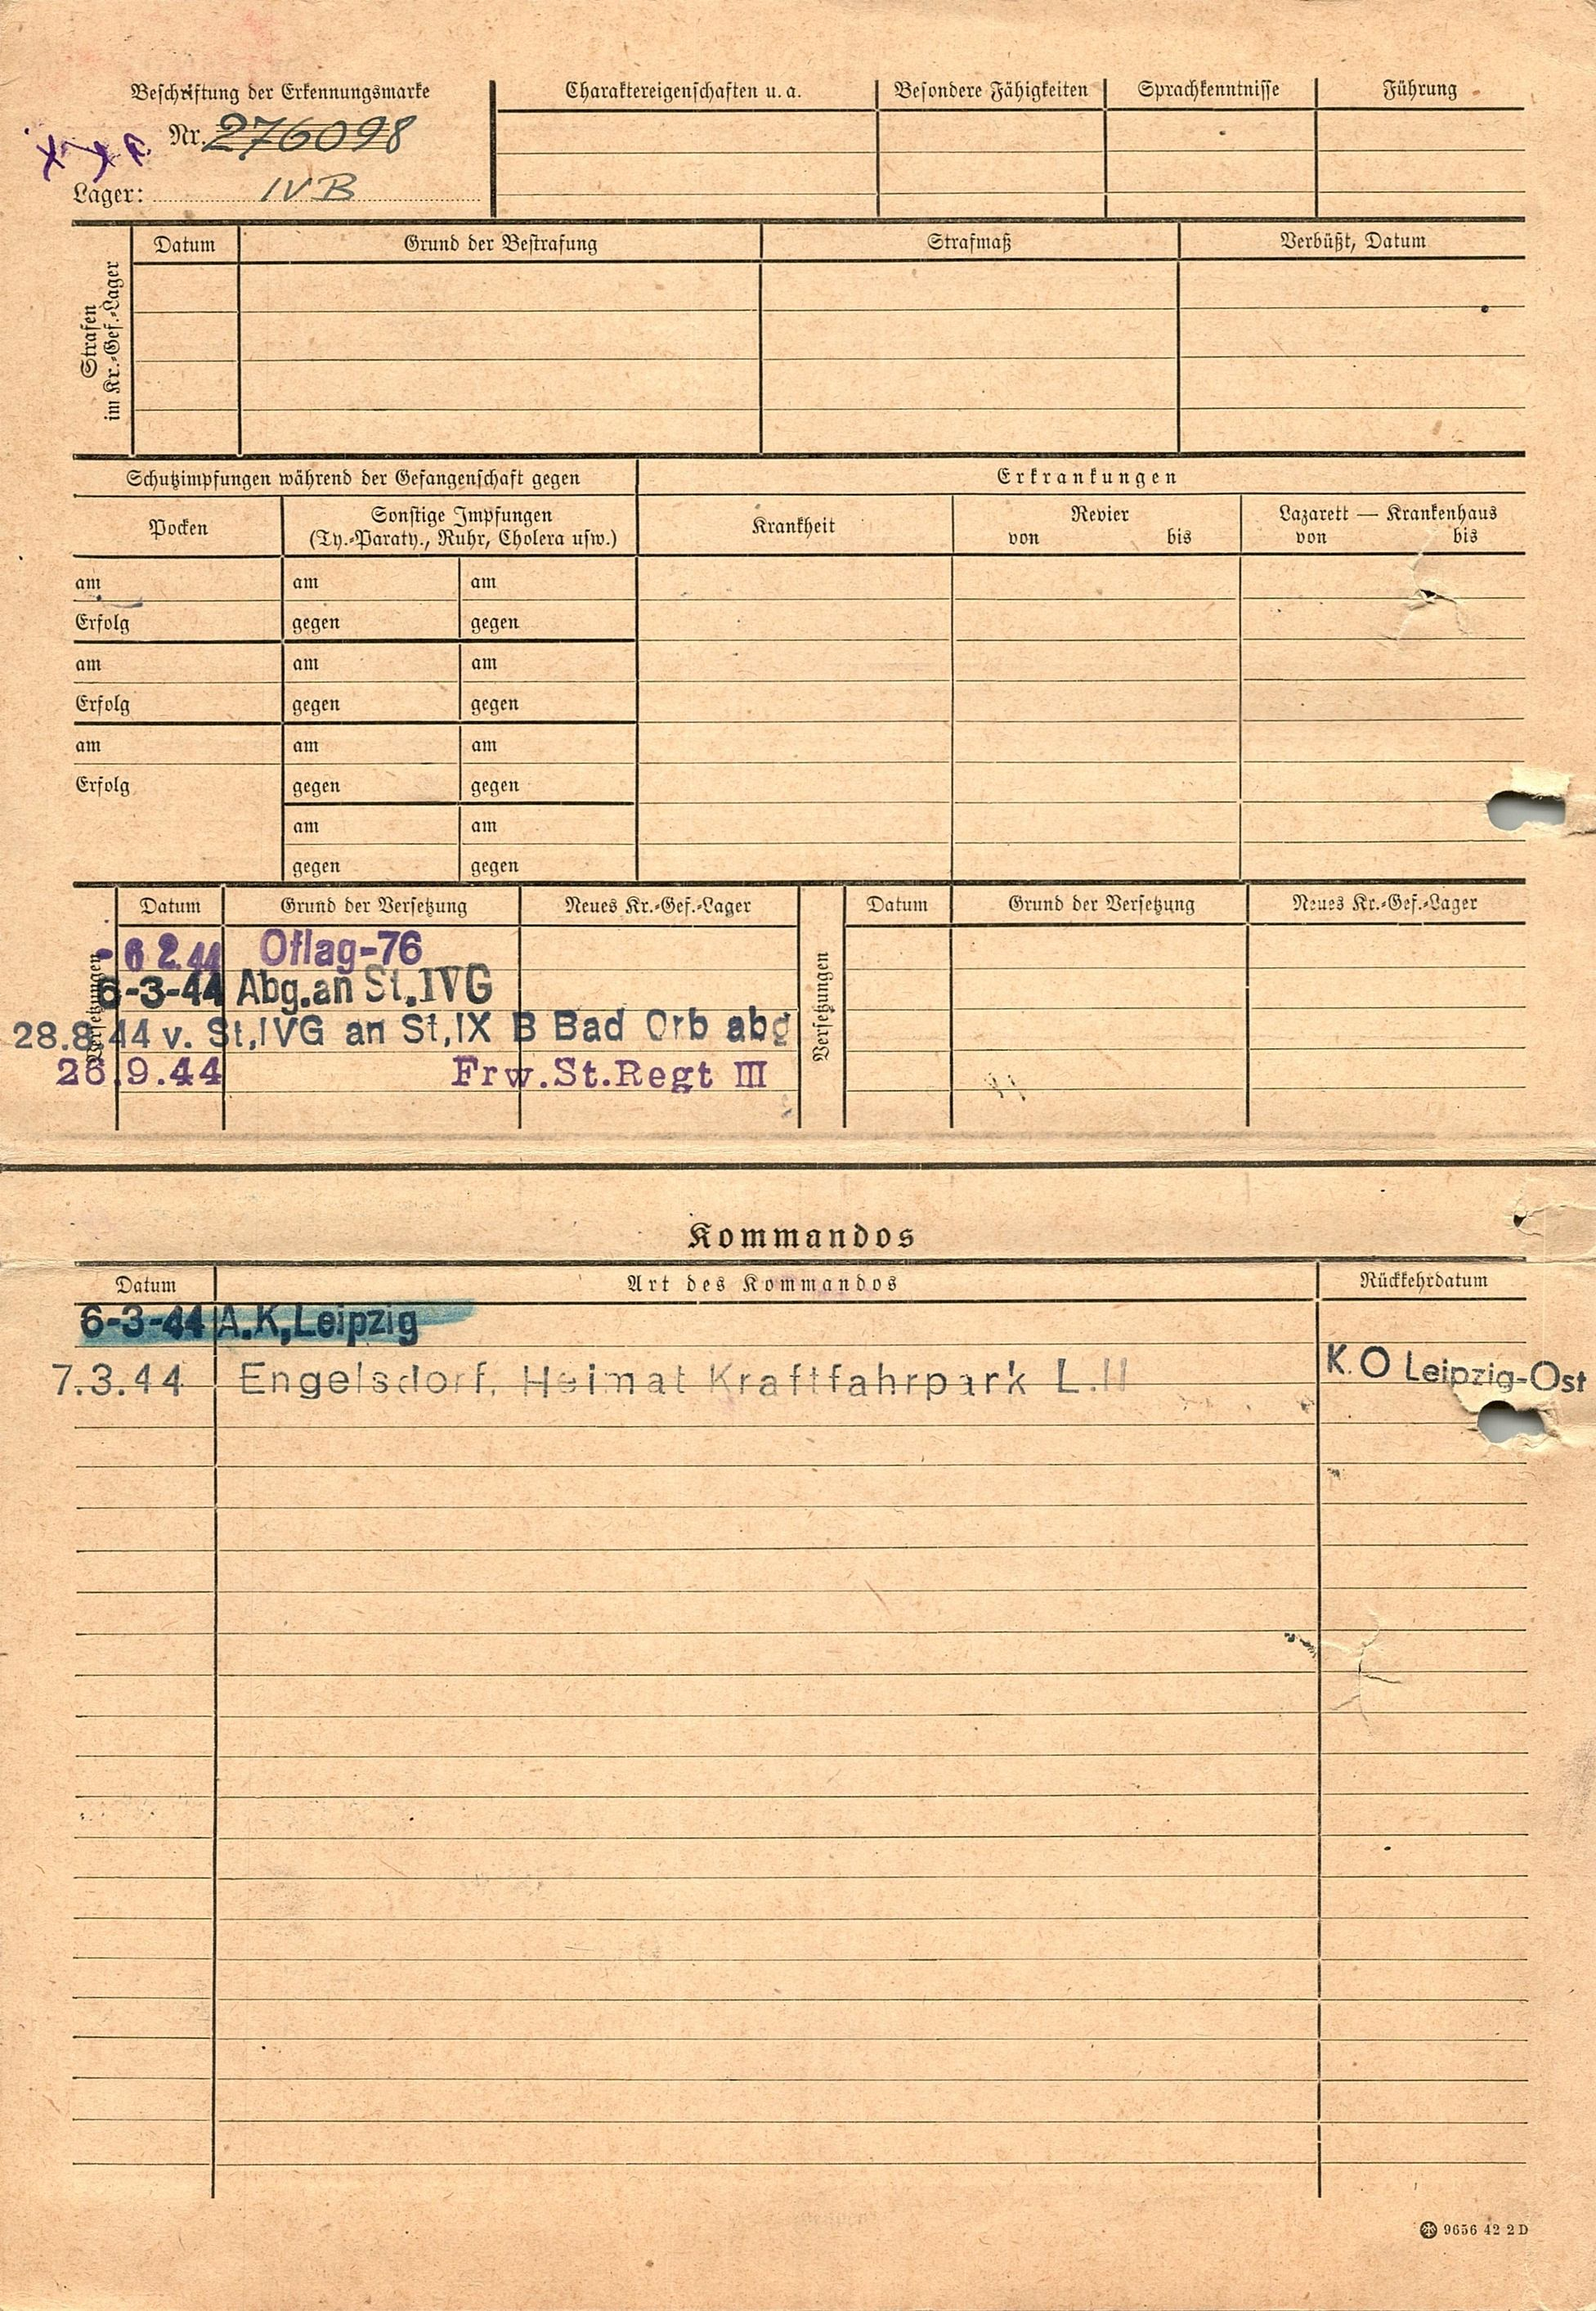 Beschriftung der Erkennungsmarke
Nr. 276098
Lager: IVB
Charaktereigenschaften u. a.
Besondere Fähigkeiten
Sprachkenntnisse
Führung
Strafen
im Kr.-Gef.-Lager
Datum
Grund der Bestrafung
Strafmaß
Verbüßt, Datum
Schutzimpfungen während der Gefangenschaft gegen
Erkrankungen
Pocken
Sonstige Impfungen
(Ty.-Paraty., Ruhr, Cholera usw.)
Krankheit
Revier
von bis
Lazarett — Krankenhaus
von bis
am am am
Erfolg gegen gegen
am am am
Erfolg gegen gegen
am am am
Erfolg gegen gegen
am am
gegen gegen
Versetzungen
Datum Grund der Versetzung Neues Kr.-Gef.-Lager
- 6 2. 44 Oflag-76
6-3-44 Abg.an St.IVG
28.8.44 v. St.IVG an St,IX B Bad Orb abg
26.9.44 Frw.St.Regt III
Versetzungen
Datum Grund der Versetzung Neues Kr.-Gef.-Lager
Kommandos
Datum Art des Kommandos Rückkehrdatum
6-3-44 A.K,Leipzig
7.3.44 Engelsdorf, Heimat Kraftfahrpark L.II K.O Leipzig-Ost
9656 42 2 D